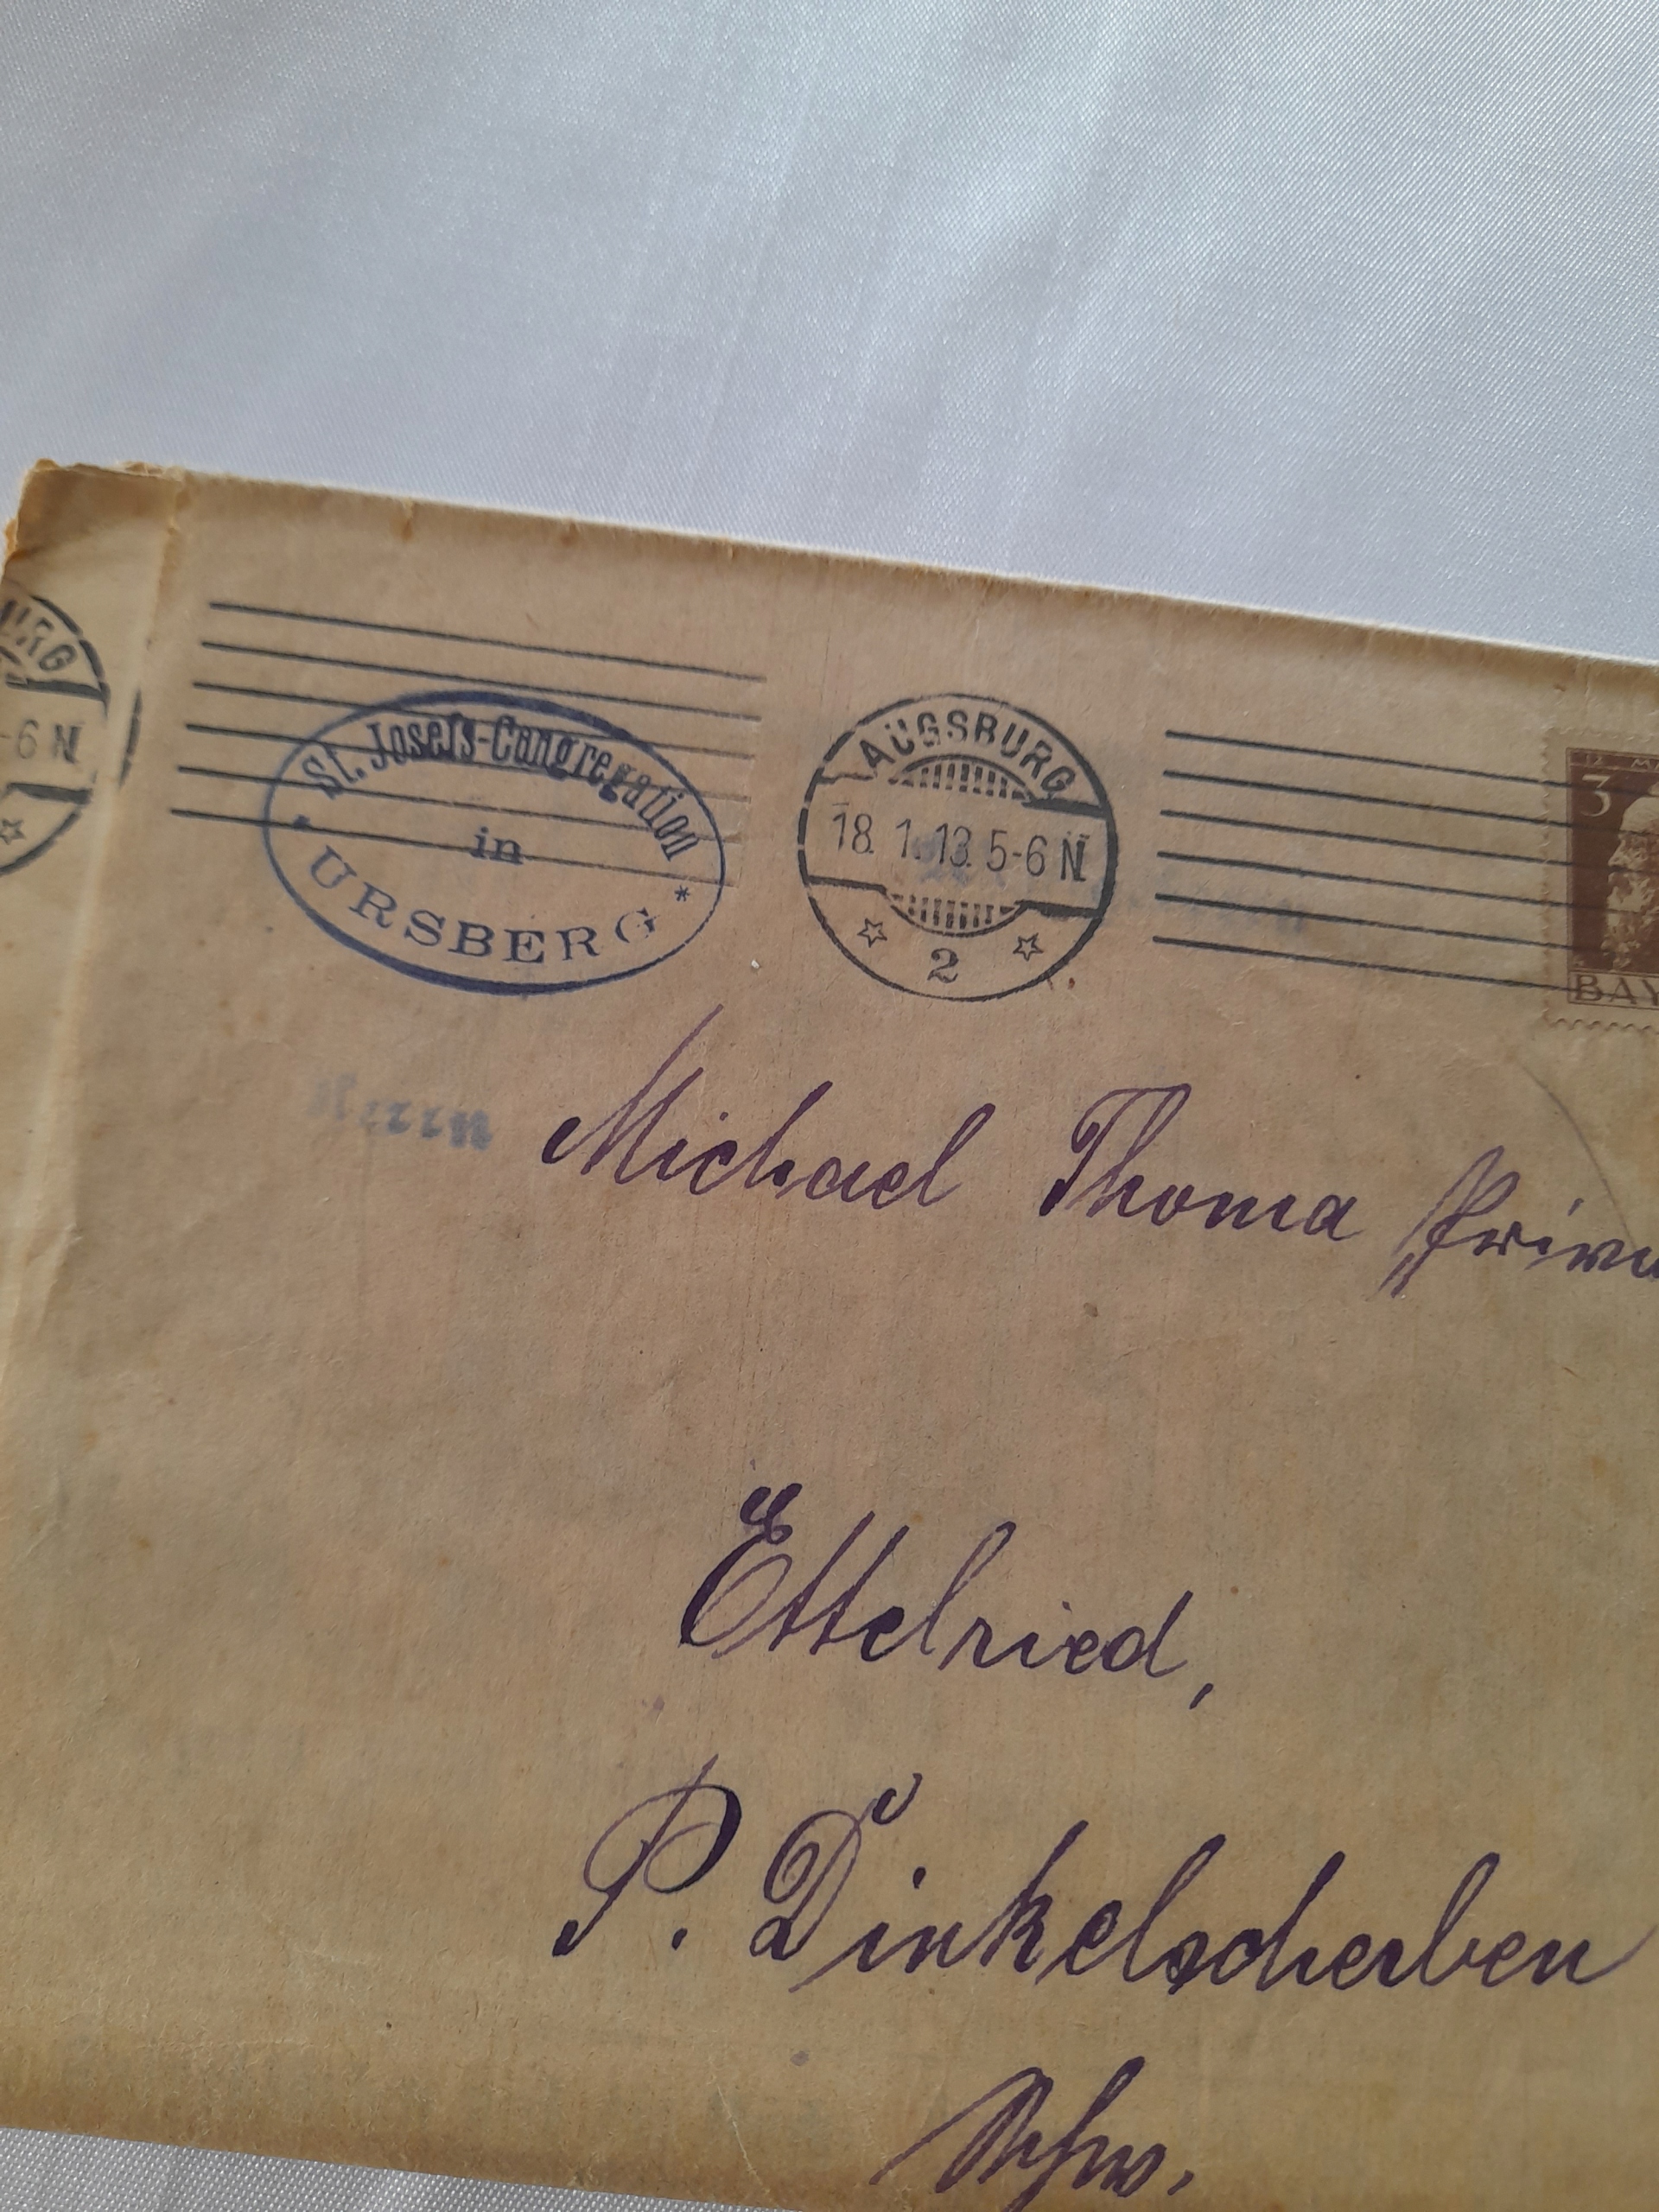 URG
-6 N
St. Josefs-Congregation
in
URSBERG
AUGSBURG
18. 1. 13. 5-6 N
2
3
BAY
Herrn
Michael Thoma
Ettelried,
P. Dinkelscherben
Schw.